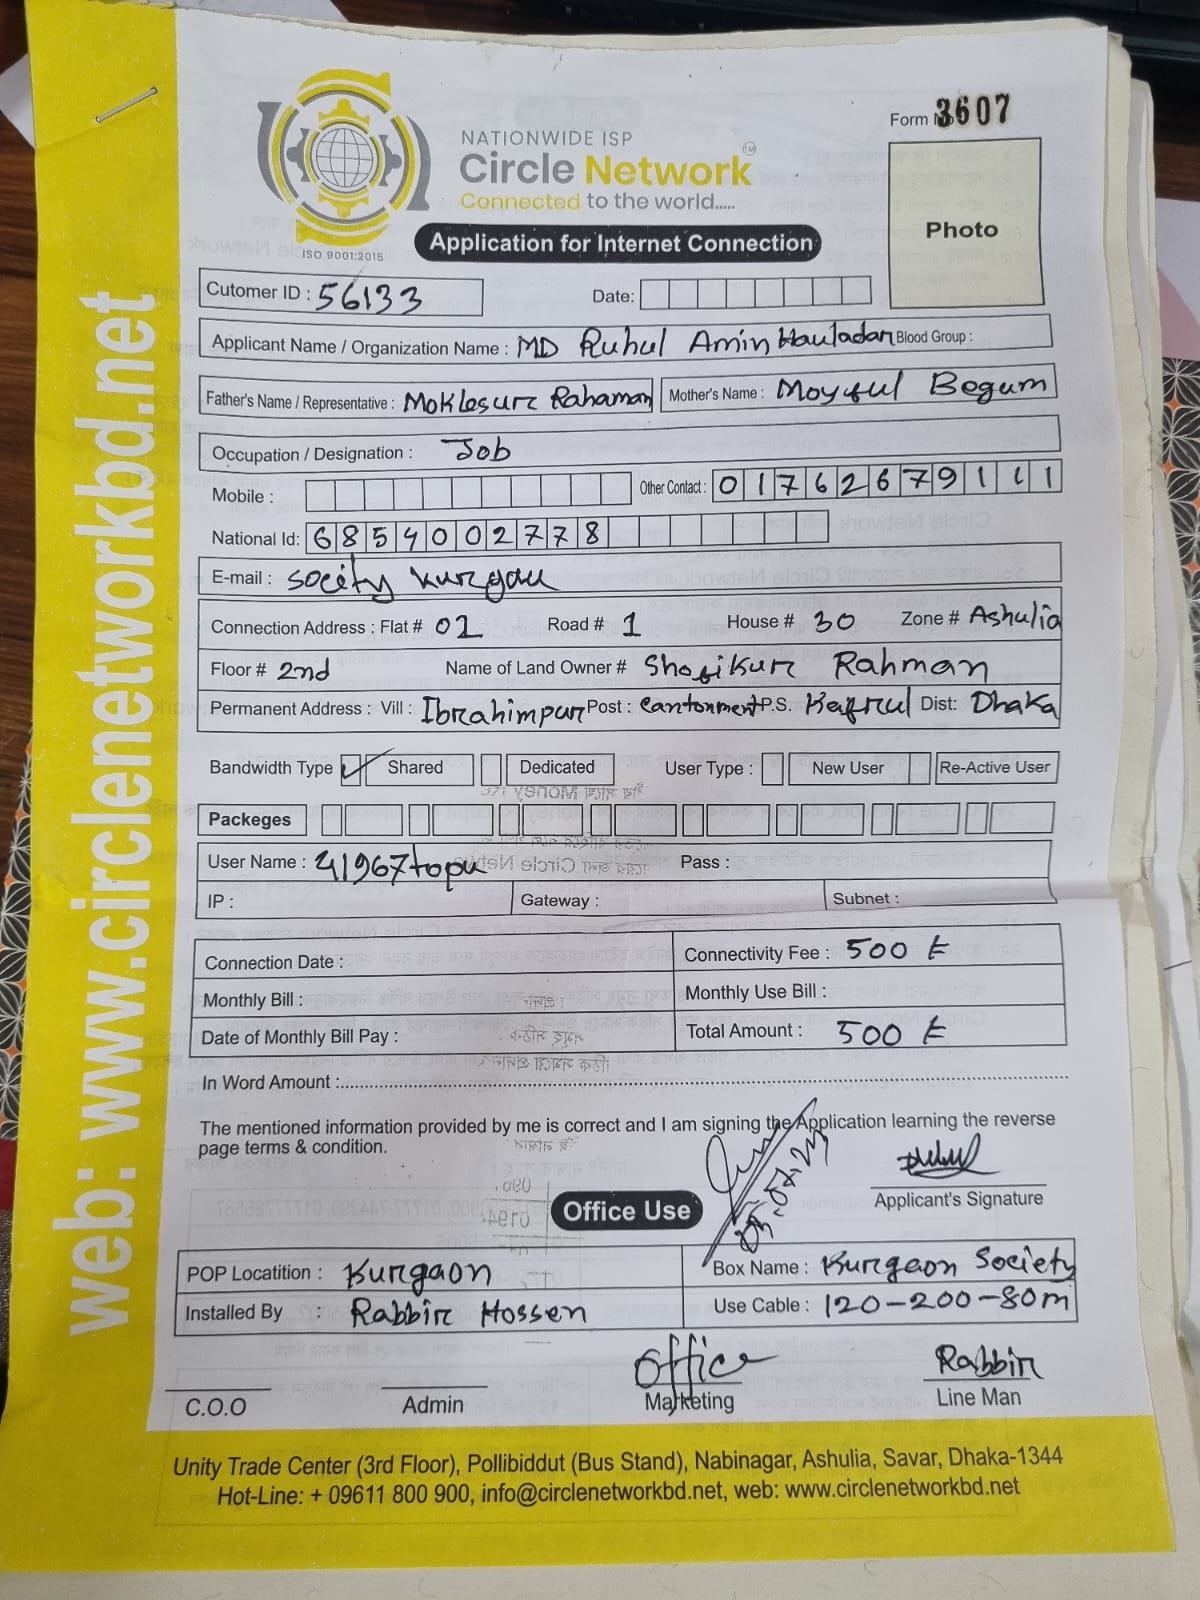 web: www.circlenetworkbd.net
Form No 3607
NATIONWIDE ISP
Circle Network TM
Connected to the world.....
ISO 9001:2015
Application for Internet Connection
Photo
Cutomer ID : 56133 Date:
Applicant Name / Organization Name : MD Ruhul Amin Hauladar Blood Group :
Father's Name / Representative : Moklesur Rahaman Mother's Name : Begum
Occupation / Designation : Job
Mobile : Other Contact : 01762679111
National Id: 6854002778
E-mail : socity kurgau
Connection Address : Flat # 02 Road # 1 House # 30 Zone # Ashulia
Floor # 2nd Name of Land Owner # Shofikur Rahman
Permanent Address : Vill : Ibrahimpur Post : Cantonment P.S. Kafrul Dist: Dhaka
Bandwidth Type ✓ Shared Dedicated User Type : New User Re-Active User
Packeges
User Name : 41967topu Pass :
IP : Gateway : Subnet :
Connection Date : Connectivity Fee : 500 ৳
Monthly Bill : Monthly Use Bill :
Date of Monthly Bill Pay : Total Amount : 500 ৳
In Word Amount :
The mentioned information provided by me is correct and I am signing the Application learning the reverse
page terms & condition.
05-07-23
Applicant's Signature
Office Use
POP Locatition : Kurgaon Box Name : Kurgaon Society
Installed By : Rabbir Hossen Use Cable : 120-200-80m
Office Rabbir
C.O.O Admin Marketing Line Man
Unity Trade Center (3rd Floor), Pollibiddut (Bus Stand), Nabinagar, Ashulia, Savar, Dhaka-1344
Hot-Line: + 09611 800 900, info@circlenetworkbd.net, web: www.circlenetworkbd.net